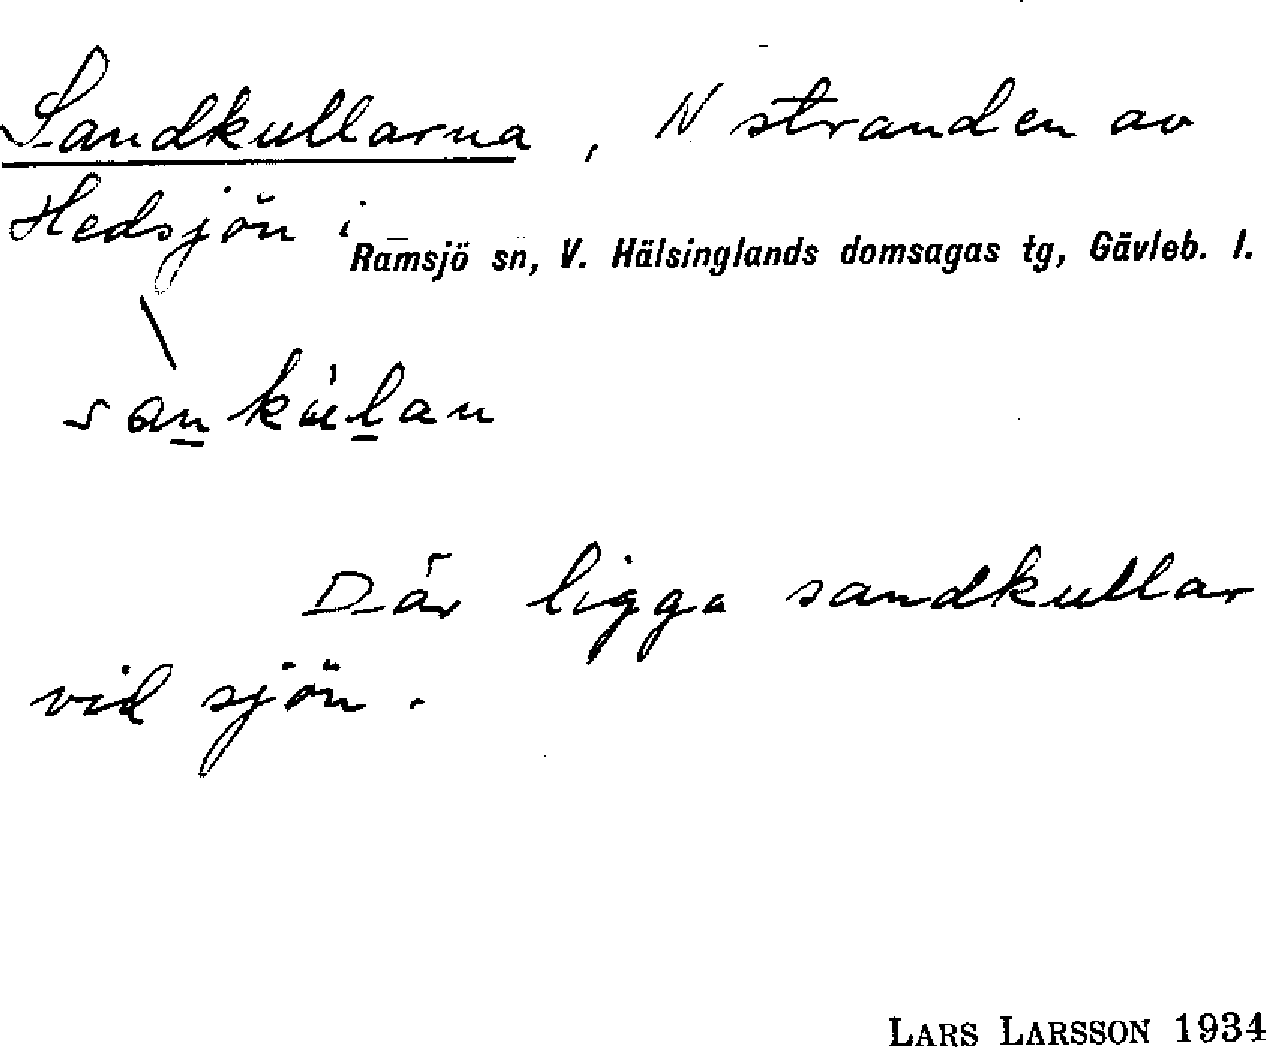 Sandkullarna, N stranden av
Hedsjön i
Ramsjö sn, V. Hälsinglands domsagas tg, Gävleb. l.
Där ligga sandkullar
vid sjön.
LARS LARSSON 1934